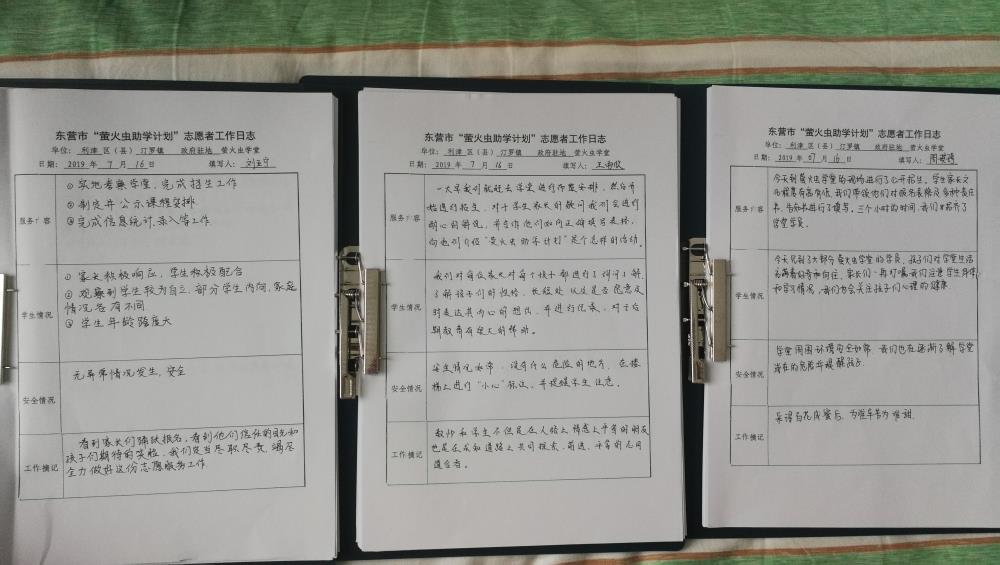 东营市“萤火虫助学计划”志愿者工作日志
单位：利津 区（县） 汀罗镇 政府驻地 萤火虫学堂
日期：2019 年 7 月 16 日 填写人：
服务内容
① 实地考察学堂，完成招生工作
② 制定并公示课程安排
③ 完成信息统计、录入等工作
学生情况
① 家长积极响应，学生积极配合
② 观察到学生较为自立，部分学生内向，家庭
情况各有不同
③ 学生年龄跨度大
安全情况
无异常情况发生，安全
工作摘记
看到家长们踊跃报名，看到他们信任的目光和
孩子们期待的笑脸，我们定当尽职尽责，竭尽
全力做好这份志愿服务工作
东营市“萤火虫助学计划”志愿者工作日志
单位：利津 区（县） 汀罗镇 政府驻地 萤火虫学堂
日期：2019 年 7 月 16 日 填写人：
服务内容
一大早我们就赶去学堂进行布置安排，然后开
始进行招生，对于学生家长的疑问我们会进行
耐心的解说，并告诉他们如何正确填写表格，
向他们介绍“萤火虫助学计划”是个怎样的活动。
学生情况
我们对每位家长对每个孩子都进行了询问了解，
了解孩子们的性格、长短处 以及是否愿意及
时表达其内心的想法，并进行记录，对于后
期教育有莫大的帮助。
安全情况
安全情况如常，没有什么危险的地方，在楼
梯上进行“小心”标注，并提醒学生注意。
工作摘记
教师和学生不但是在人格上、情感上平等的朋友
也是在求知道路上共同探索、前进、平等的志同
道合者。
东营市“萤火虫助学计划”志愿者工作日志
单位：利津 区（县） 汀罗镇 政府驻地 萤火虫学堂
日期：2019 年 07 月 16 日 填写人：
服务内容
今天到萤火虫学堂的现场进行了公开招生。学生家长文
化程度有高有低，我们带领他们对报名表格及各种责任
书、告知书进行了填写。三个小时的时间，我们招齐了
学堂学员。
学生情况
今天见到了大部分萤火虫学堂的学员，孩子们对学堂生活
充满着好奇和向往，家长们一再叮嘱我们注意学生身体
和学习情况，我们也会关注孩子们心理的健康。
安全情况
学堂周围环境安全如常，我们也在逐渐了解学堂
潜在的危险并提醒孩子。
工作摘记
采得百花成蜜后，为谁辛苦为谁甜